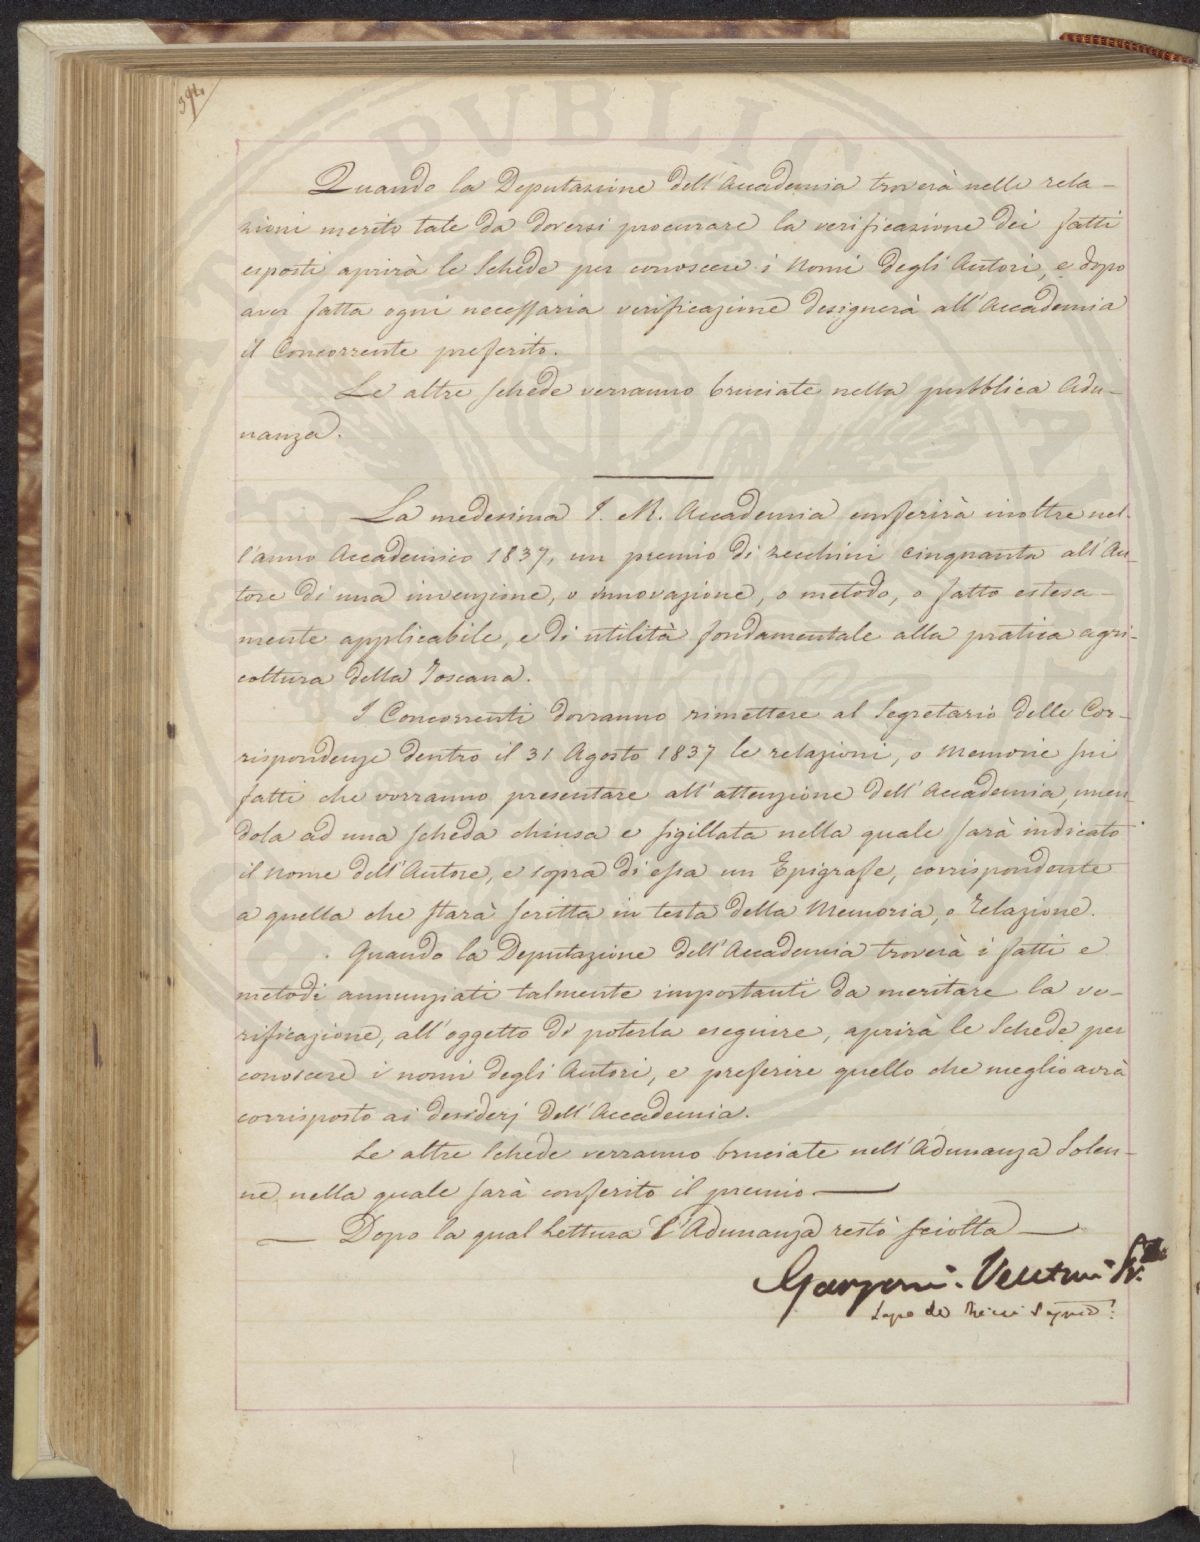 394
Quando la Deputazione dell'Accademia troverà nelle rela-
zioni merito tale da doversi procurare la verificazione dei fatti
esposti aprirà le Schede per conoscere i Nomi degli Autori, e dopo
aver fatta ogni necessaria verificazione designerà all'Accademia
il Concorrente preferito.
Le altre schede verranno bruciate nella pubblica Adu-
nanza.
La medesima I. e R. Accademia conferirà inoltre nel-
l'anno Accademico 1837, un premio di zecchini cinquanta all'Au
tore di una invenzione, o innovazione, o metodo, o fatto estesa-
mente applicabile, e di utilità fondamentale alla pratica agri-
coltura della Toscana.
I Concorrenti dovranno rimettere al Segretario delle Cor-
rispondenze dentro il 31 Agosto 1837 le relazioni, o Memorie sui
fatti che vorranno presentare all'attenzione dell'Accademia, unen-
dola ad una scheda chiusa e sigillata nella quale sarà indicato
il nome dell'Autore, e sopra di essa un Epigrafe, corrispondente
a quella che starà scritta in testa della Memoria, o Relazione.
Quando la Deputazione dell'Accademia troverà i fatti e
metodi annunziati talmente importanti da meritare la ve-
rificazione, all'oggetto di poterla eseguire, aprirà le Schede per
conoscere i nomi degli Autori, e preferire quello che meglio avrà
corrisposto ai desiderj dell'Accademia.
Le altre Schede verranno bruciate nell'Adunanza Solen-
ne nella quale sarà conferito il premio.
Dopo la qual Lettura l'Adunanza restò sciolta
Garzoni. Venturi
Lapo de Ricci
PUBLIC